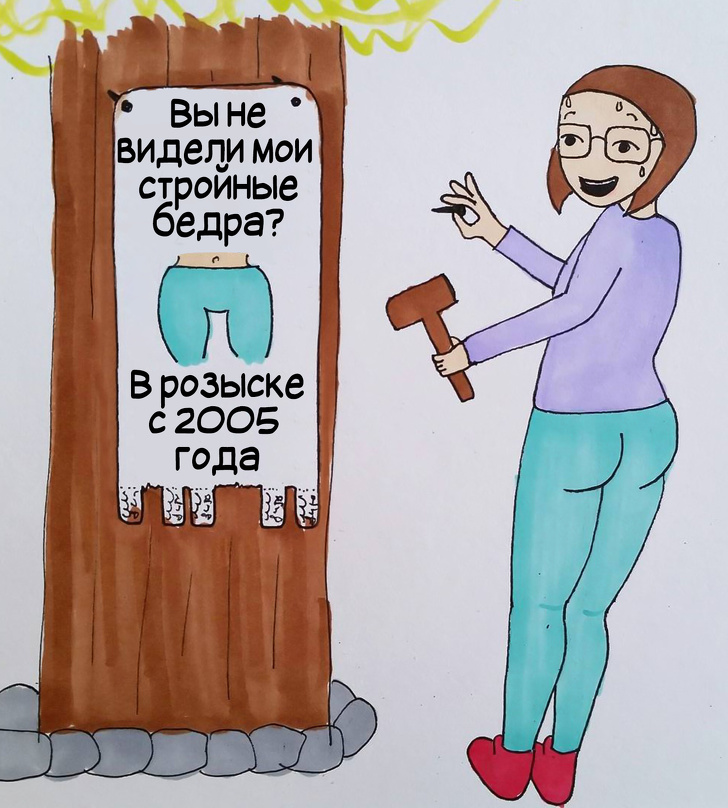 Вы не
видели мои
стройные
бедра?
В розыске
с 2005
года